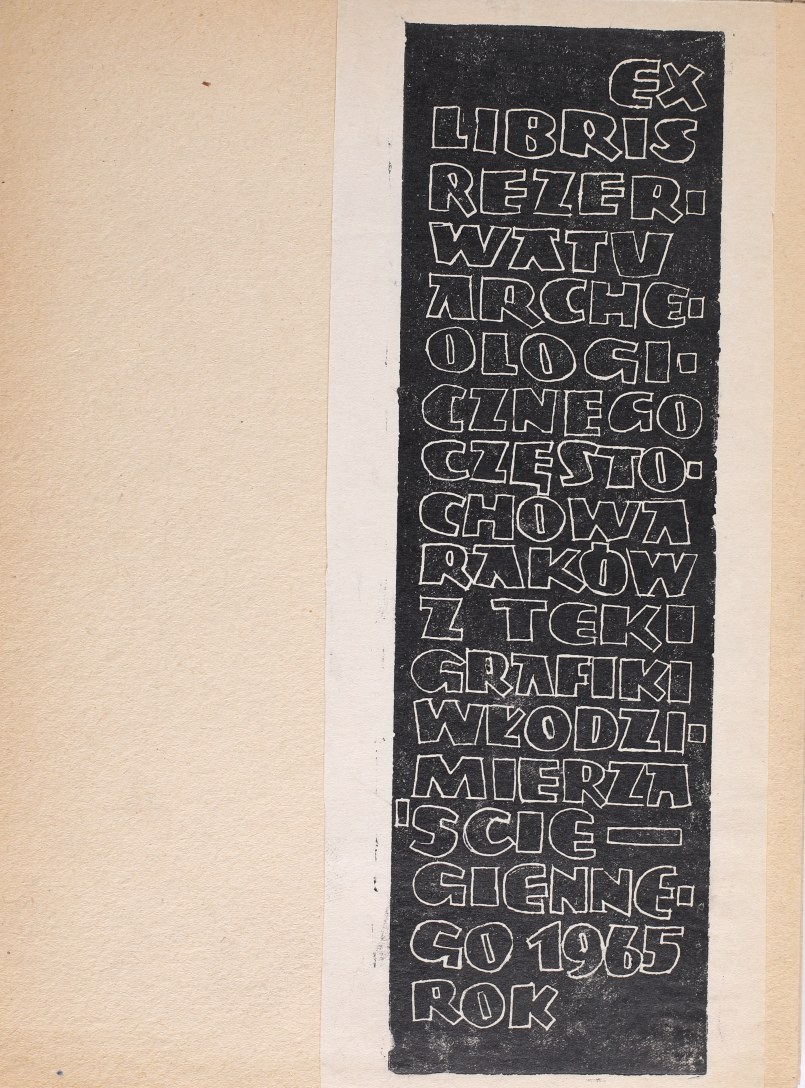 EX
LIBRIS
REZER-
WATU
ARCHE-
OLOGI-
CZNEGO
CZĘSTO-
CHOWA
RAKÓW
Z TEKI
GRAFIKI
WŁODZI-
MIERZA
'SCIE—
GIENNE-
GO 1965
ROK